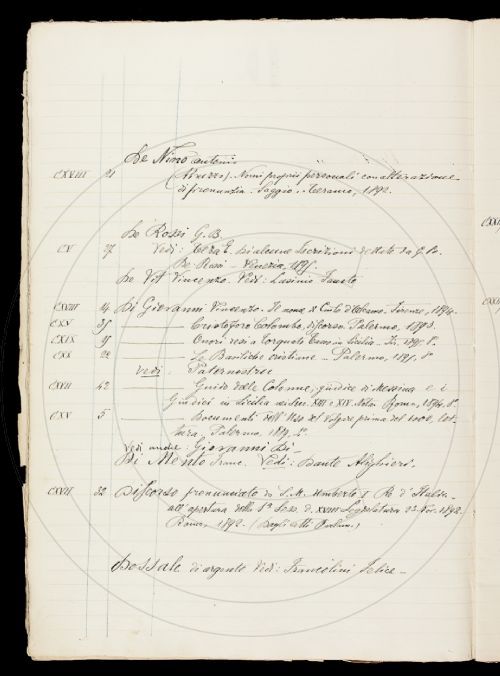 De Nino Antonio
CXVIII 21 (Abruzzo). Nomi proprii personali con alterazione
di pronunzia. Saggio. Teramo, 1892.
De Rossi G. B.
CV 27 Vedi: Teza E. Di alcune Iscrizioni dettate da G. B.
De Rossi - Venezia, 1895.
De Vit Vincenzo. Vedi: Lasinio Fausto
CXVIII 14 Di Giovanni Vincenzo. Firenze, 1894.
CXV 35 Cristoforo Colombo, discorso. Palermo, 1893.
CXIX 15 Onori resi a Torquato Tasso in Sicilia. 1895. 8°
CXX 28 Le Basiliche cristiane - Palermo, 1895. 8°
vedi Paternostreu
CXVII 42 Guido delle Colonne, giudice di Messina e i
Giudici in Sicilia nei Sec. XIII e XIV. Roma, 1894. 8°
CXV 5 Documenti dell'Uso del Volgare prima del 1000, let-
tura, Palermo,
Vedi anche: Giovanni Di-
Di Mento Franc. Vedi: Dante Alighieri.
CXVII 32 Discorso pronunciato da S. M. Umberto I Re d'Italia
all'apertura della 1ª Sess. d. XVIII Legislatura 23 Nov. 1892.
Roma, 1892. (Dagli Atti Parlam.)
Dossale di argento Vedi: Franceschini Felice -
CXX